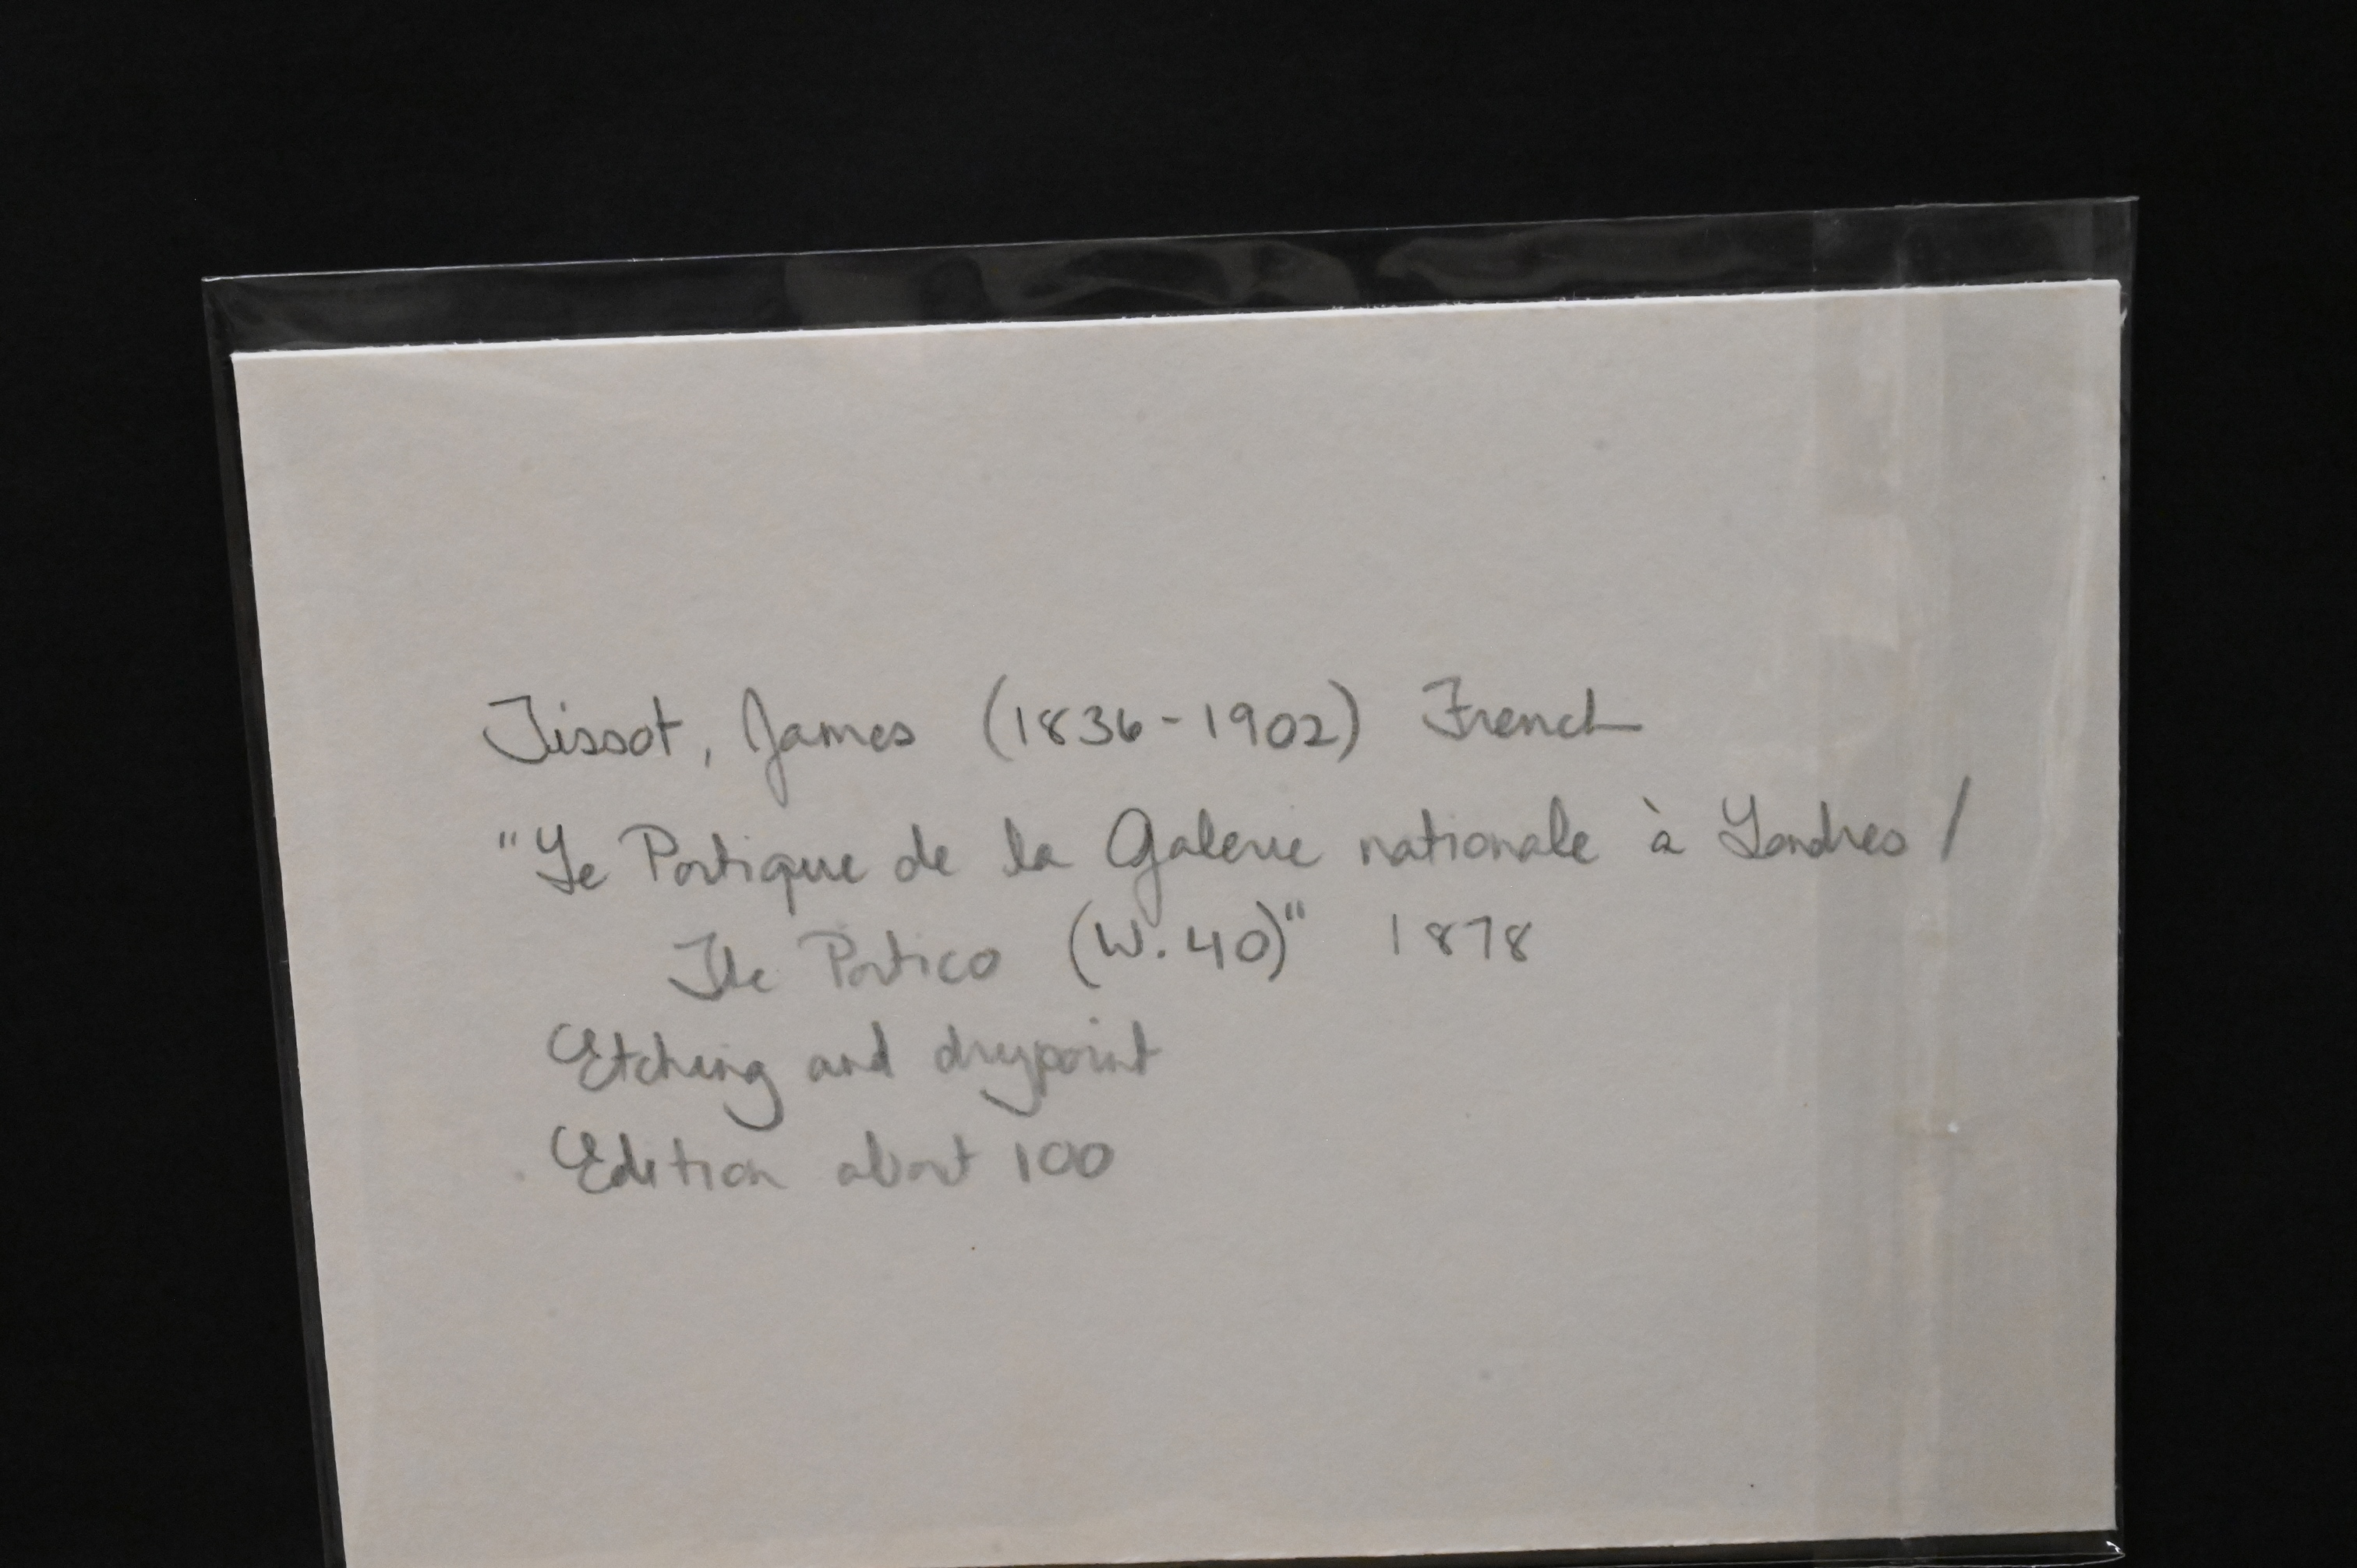 Tissot, James (1836-1902) French
"Le Portique de la Galerie nationale à Londres /
The Portico (W. 40)" 1878
Etching and drypoint
Edition about 100